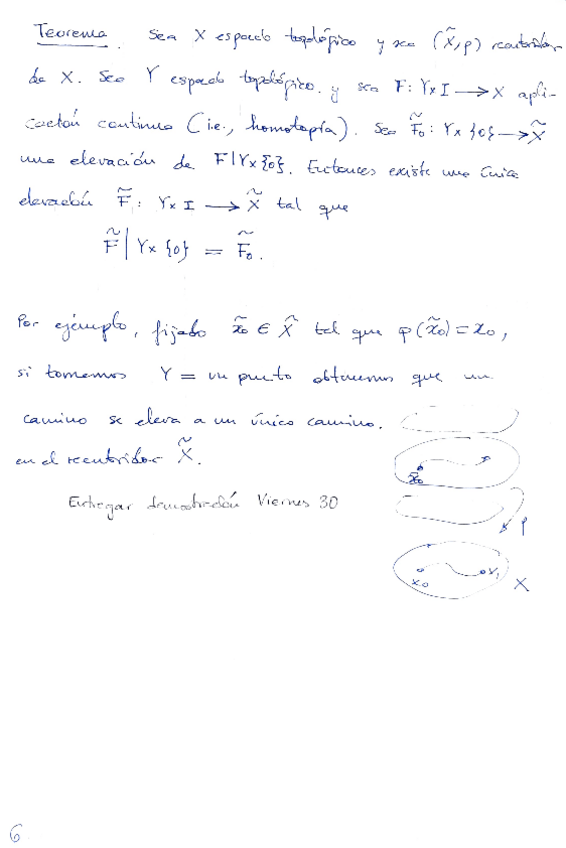 Teorema. Sea X espacio topológico y sea (X̃,p) recubridor
de X. Sea Y espacio topológico. y sea F: Y×I ⟶ X apli-
cación continua (i.e., homotopía). Sea F̃₀: Y×{0} ⟶ X̃
una elevación de F|Y×{0}. Entonces existe una única
elevación F̃: Y×I ⟶ X̃ tal que
F̃|Y×{0} = F̃₀.
Por ejemplo, fijado x̃₀ ∈ X̃ tal que p(x̃₀)=x₀,
si tomamos Y = un punto obtenemos que un
camino se eleva a un único camino.
en el recubridor X̃.
Entregar demostración Viernes 30
x̃₀
p
x₀ x₁
X
6